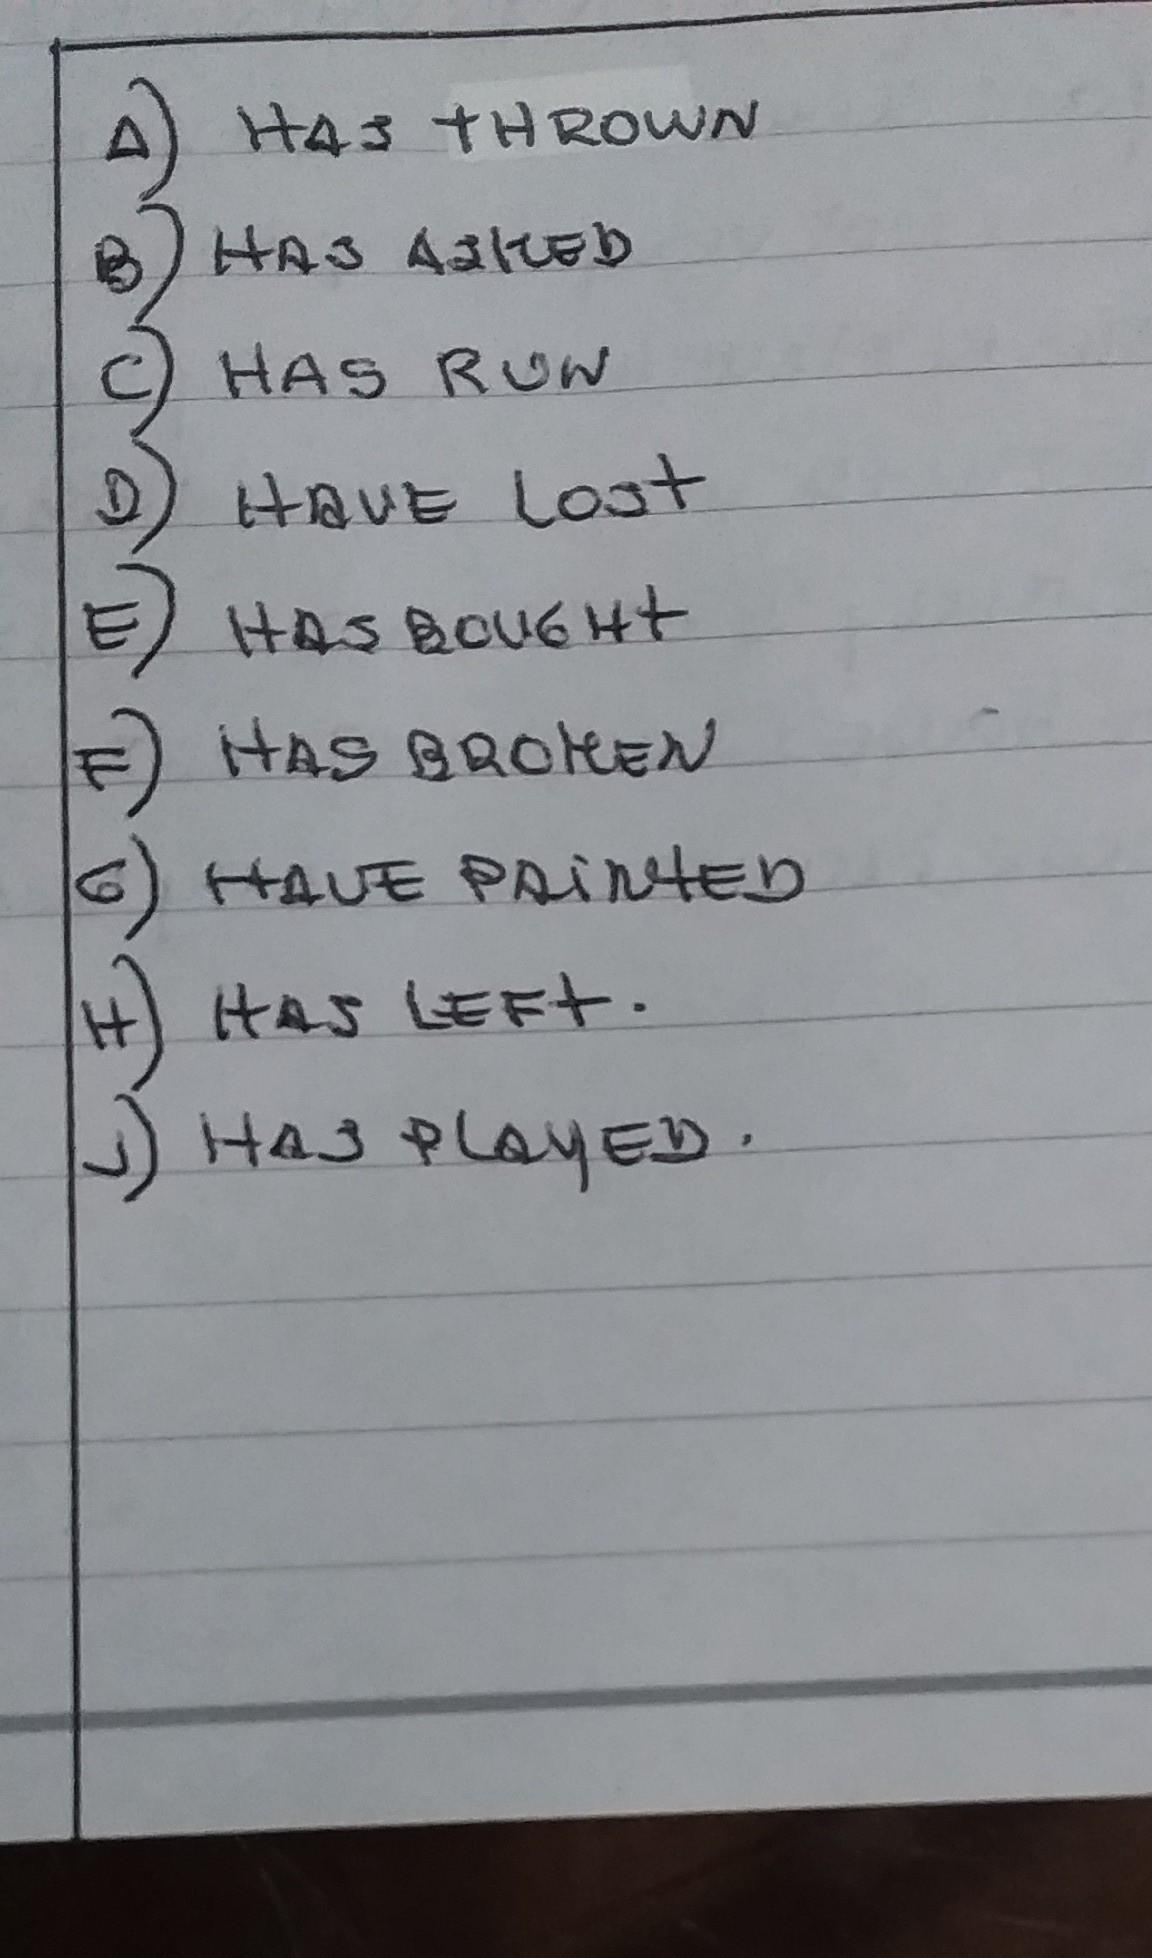 A) HAS THROWN
B) HAS ASKED
C) HAS RUN
D) HAVE LOST
E) HAS BOUGHT
F) HAS BROKEN
G) HAVE PAINTED
H) HAS LEFT.
J) HAS PLAYED.